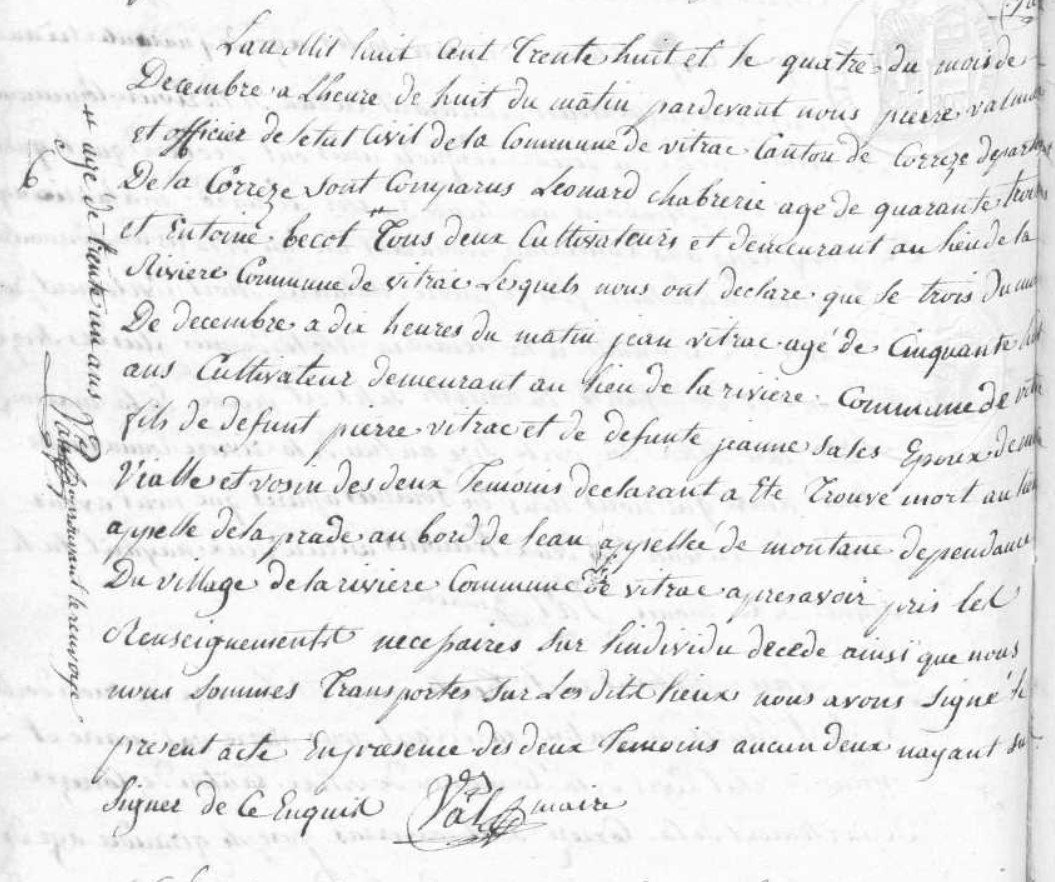 Lan Mil huit Cent Trente huit et le quatre du mois de
Decembre a Lheure de huit du matin pardevant nous pierre val maire
et officier de letat Civil de la Commune de vitrac Canton de Corrèze departement
De la Corrèze sont Comparus Leonard chabrerie age de quarante trois
et Entoine becot " Tous deux Cultivateurs et demeurant au lieu de la
Riviere Commune de vitrac Lesquels nous ont declare que le trois du mois
De decembre a dix heures du matin jean vitrac agé de Cinquante huit
ans Cultivateur demeurant au lieu de la riviere Commune de vitrac
fils de defunt pierre vitrac et de defunte jeanne sales Epoux de
Vialle et vosin des deux Temoins declarant a Ete Trouvé mort au lieu
appelle de la prade au bord de leau appellée de montane dependance
Du village de la riviere Commune de vitrac apres avoir pris les
Renseignements necessaires sur lindividu decede ainsi que nous
nous sommes Transportes sur Les dits lieux nous avons signé le
present acte En presence des deux Temoins aucun deux nayant su
signer de Ce Enquis Val maire
" age de trente un ans
Val approuvant le renvoye